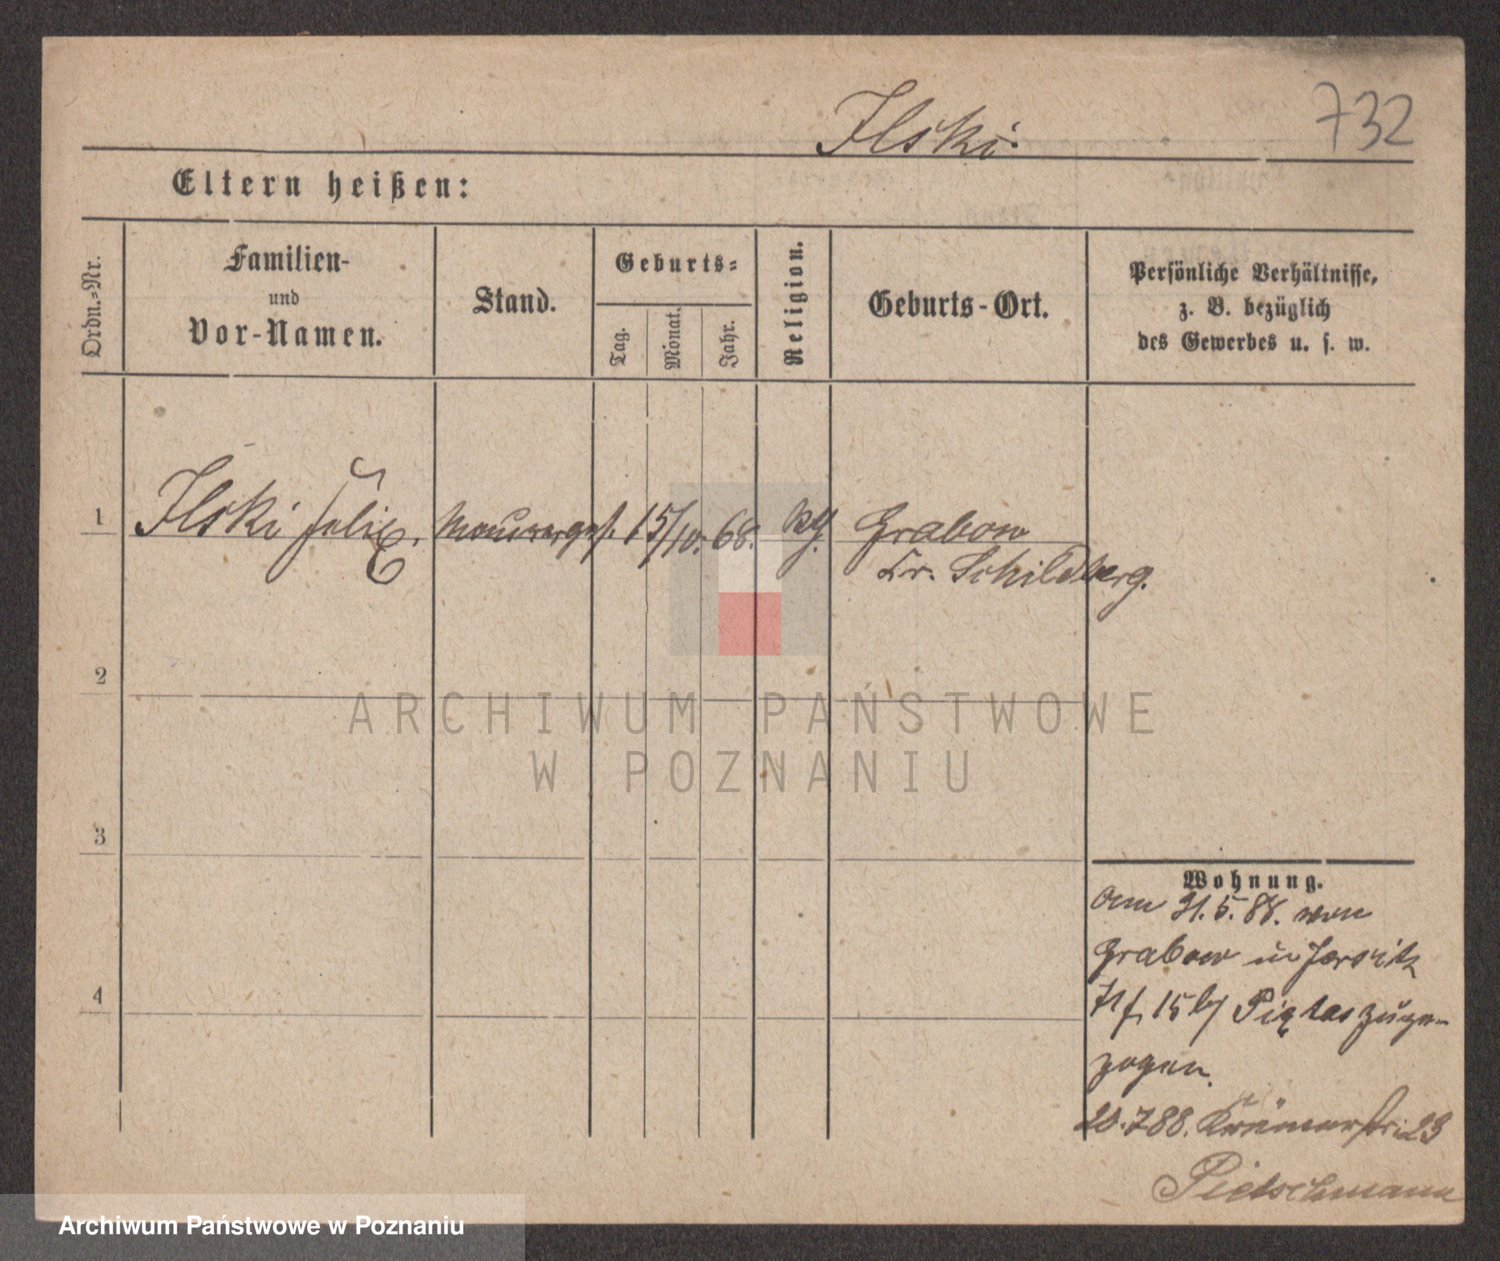 Ilski.
732
Eltern heißen:
Ordn.=Nr.
Familien-
und
Vor-Namen.
Stand.
Geburts=
Tag.
Monat.
Jahr.
Religion.
Geburts-Ort.
Persönliche Verhältnisse,
z. B. bezüglich
des Gewerbes u. s. w.
1
Ilski Felix.
Maurerges.
15/10.
68.
Grabow
Kr. Schildberg.
2
ARCHIWUM PAŃSTWOWE
W POZNANIU
3
4
Wohnung.
Am 31.5.88. von
Grabow in Jersitz
15 b/ zuge-
zogen.
20.7.88. Krämerstr. 23
Pietschmann
Archiwum Państwowe w Poznaniu